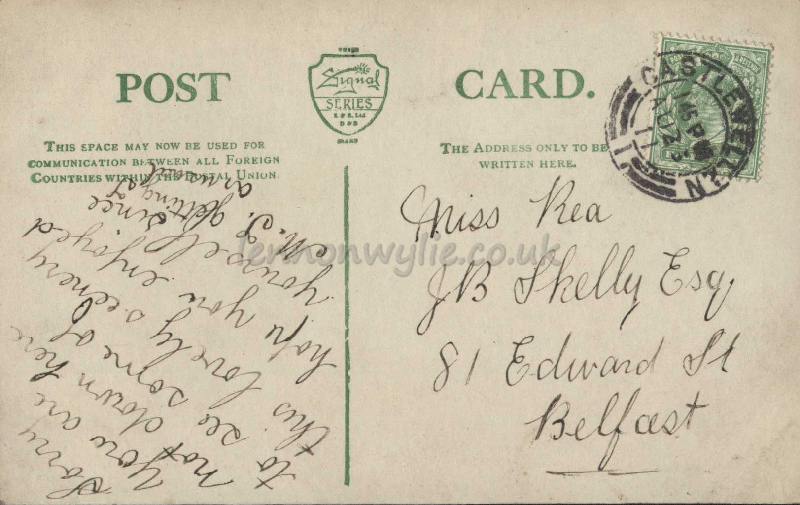 POST CARD.
Signal
SERIES
THIS SPACE MAY NOW BE USED FOR
COMMUNICATION BETWEEN ALL FOREIGN
COUNTRIES WITHIN THE POSTAL UNION
THE ADDRESS ONLY TO BE
WRITTEN HERE.
CASTLEWELLAN
AU 23
11
Sorry
you are
not down here
to see some of
this lovely scenery
hope you enjoyed
yourself since
getting
as usual
Miss Rea
JB Skelly Esq,
81 Edward St
Belfast
lennonwylie.co.uk